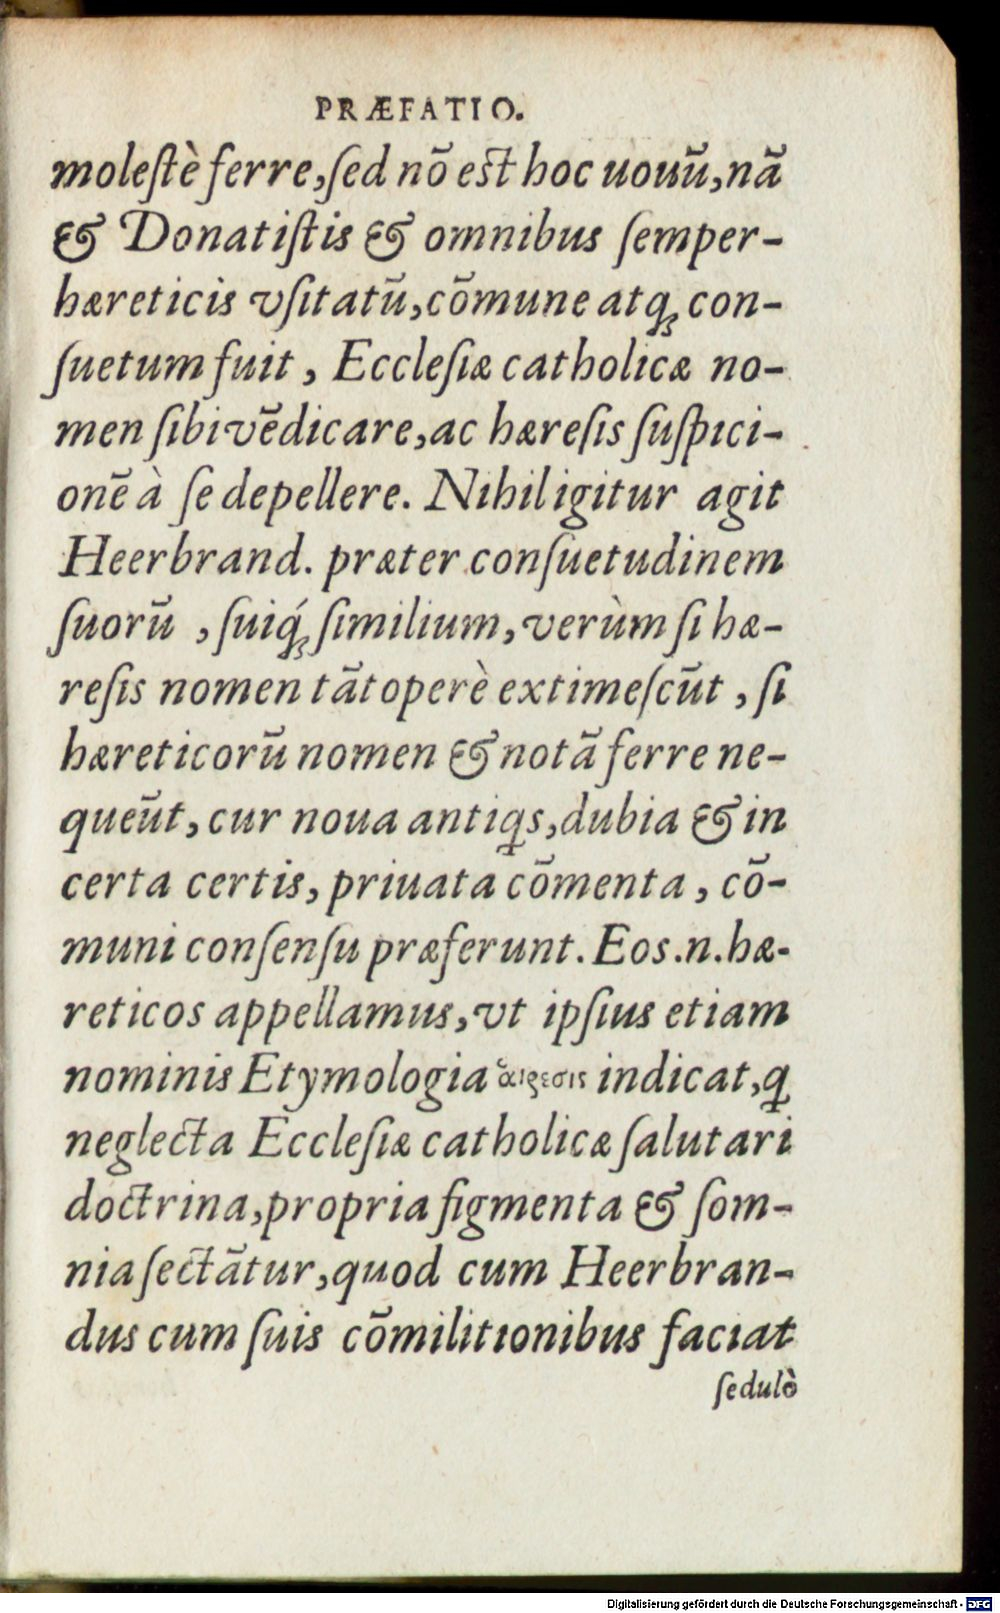 PRÆFATIO.
moleſtè ferre,ſed nõ eſt hoc uouũ,nã
& Donatiſtis & omnibus ſemper-
hæreticis vſitatũ,cõmune atq; con-
ſuetum fuit , Eccleſiæ catholicæ no-
men ſibi vẽdicare,ac hæreſis ſuſpici-
onẽ à ſe depellere. Nihil igitur agit
Heerbrand. præter conſuetudinem
ſuorũ , ſuiq́; ſimilium,verùm ſi hæ-
reſis nomen tãtoperè extimeſcũt , ſi
hæreticorũ nomen & notã ferre ne-
queũt, cur noua antiꝗs,dubia & in
certa certis, priuata cõmenta , cõ-
muni conſenſu præferunt. Eos.n.hæ-
reticos appellamus,vt ipſius etiam
nominis Etymologia αἵρεσις indicat,ꝗ
neglecta Eccleſiæ catholicæ ſalutari
doctrina,propria figmenta & ſom-
nia ſectãtur,quod cum Heerbran-
dus cum ſuis cõmilitionibus faciat
ſedulò
Digitalisierung gefördert durch die Deutsche Forschungsgemeinschaft - DFG